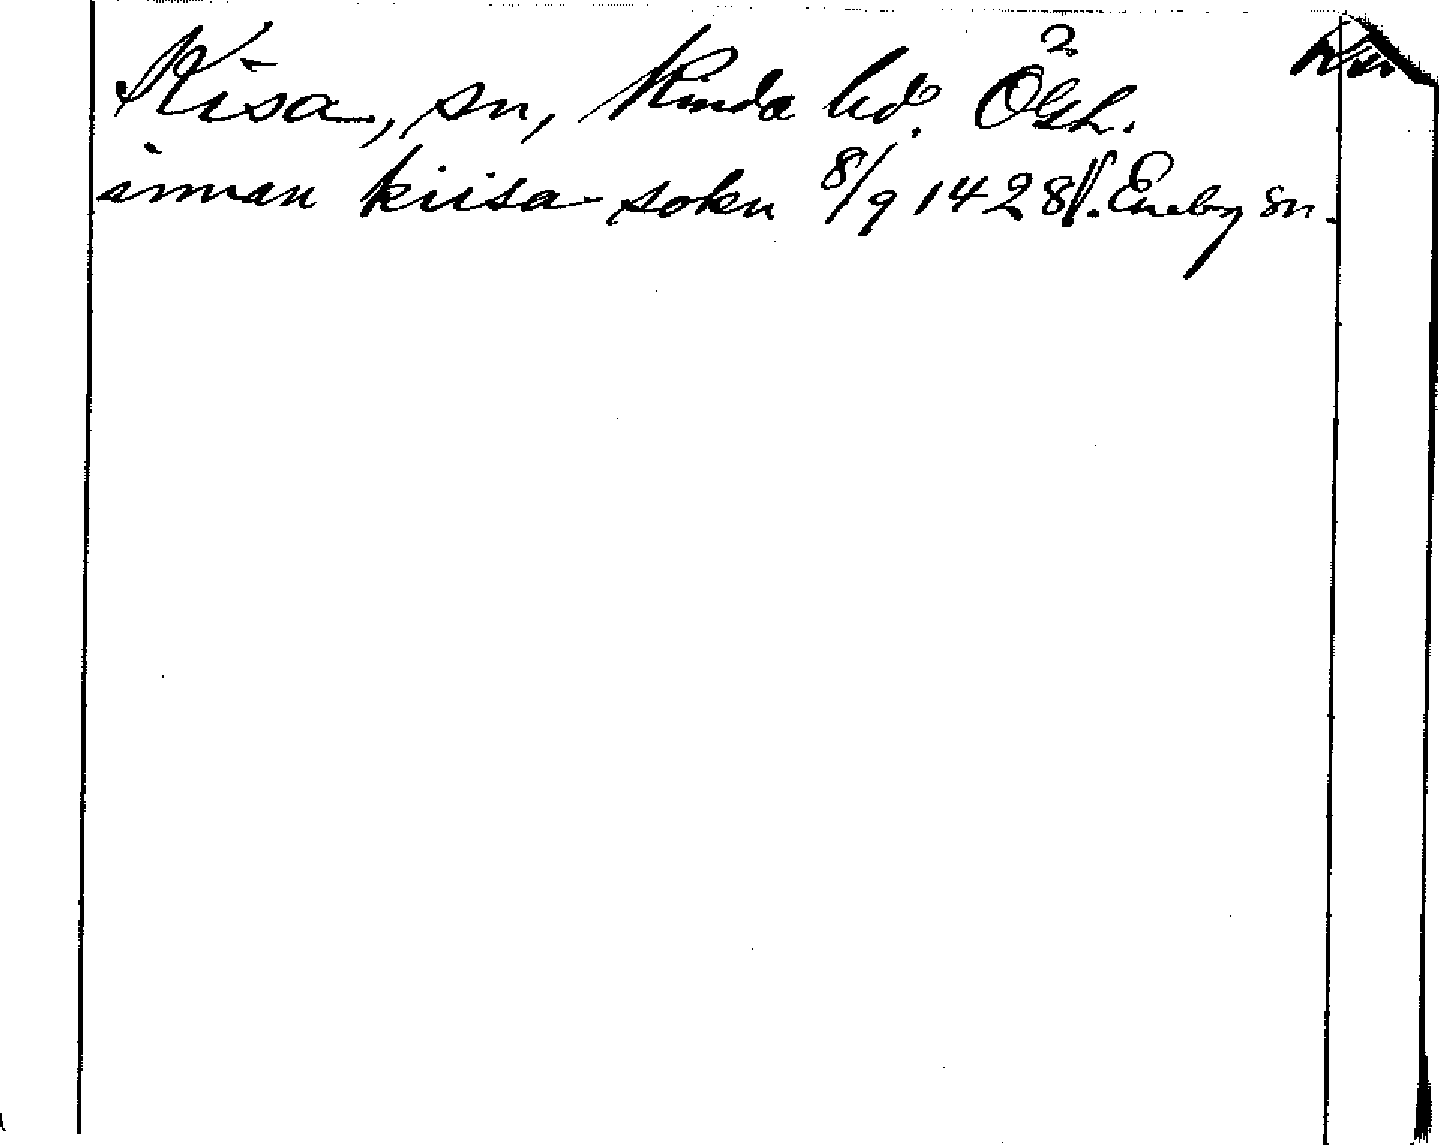 Kisa, sn, Kinda hd. Ögl.
innan kiisa sokn 8/9 1428 f. Eneby sn.